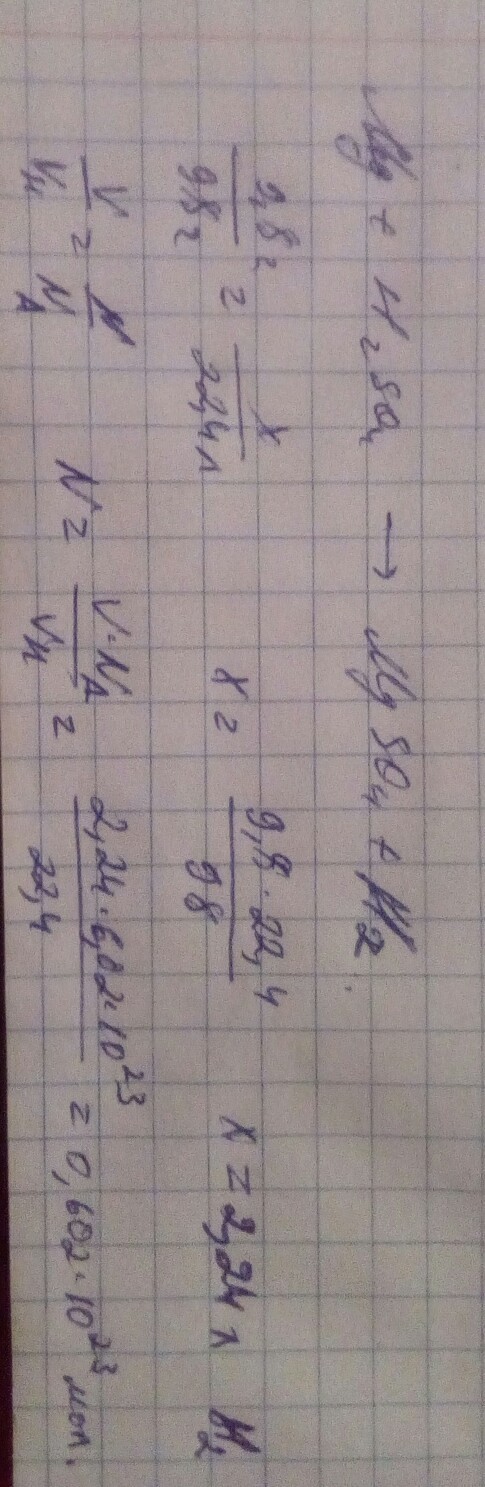 Mg + H₂SO₄ → MgSO₄ + H₂
9,8г/98г = x/22,4л x = 9,8·22,4/98 x = 2,24л H₂
V/Vм = N/NA N = V·NA/Vм = 2,24·6,02·10²³/22,4 = 0,602·10²³ мол.